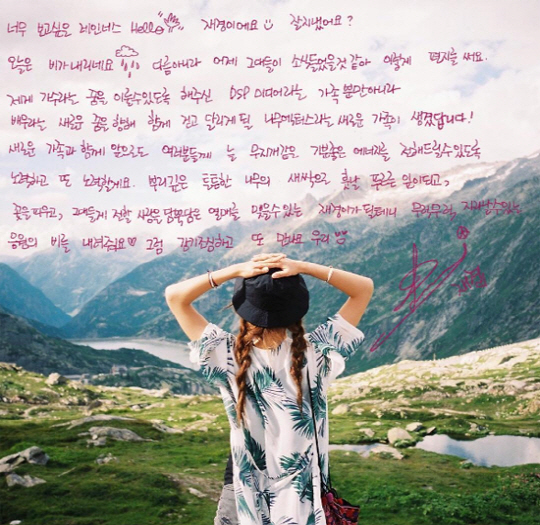 너무 보고싶은 레인너스 Hello 재경이에요 잘지냈어요?
오늘은 비가내리네요 다름아니라 어제 그대들이 소식들었을것 같아 이렇게 편지를 써요.
제게 가수라는 꿈을 이룰수있도록 해주신 DSP 미디어라는 가족 뿐만아니라
배우라는 새로운 꿈을 향해 함께 걷고 달리게 될 나무엑터스라는 새로운 가족이 생겼답니다!
새로운 가족과 함께 앞으로도 여러분들께 늘 무지개같은 기분좋은 에너지를 전해드릴수있도록
노력하고 또 노력할게요. 뿌리깊은 튼튼한 나무의 새싹으로 훗날 푸르른 잎이되고,
꽃을 피우고, 그대들께 전할 사랑을 담뿍담은 열매를 맺을수있는 재경이가 될테니 무럭무럭 자라날수있는
응원의 비를 내려줘요 그럼 감기조심하고 또 만나요 우리